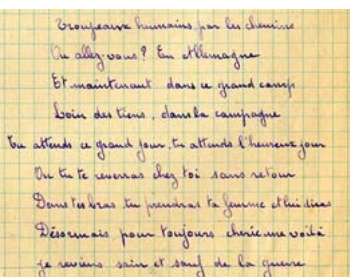 Troupeaux humains par les chemins
Ou allez-vous? En Allemagne
Et maintenant dans ce grand camp
Loin des tiens, dans la campagne
Tu attends ce grand jour, tu attends l'heureux jour
Ou tu te reverras chez toi sans retour
Dans tes bras tu prendras ta femme et lui diras
Désormais pour toujours cherie me voilà
je reviens sain et sauf de la guerre